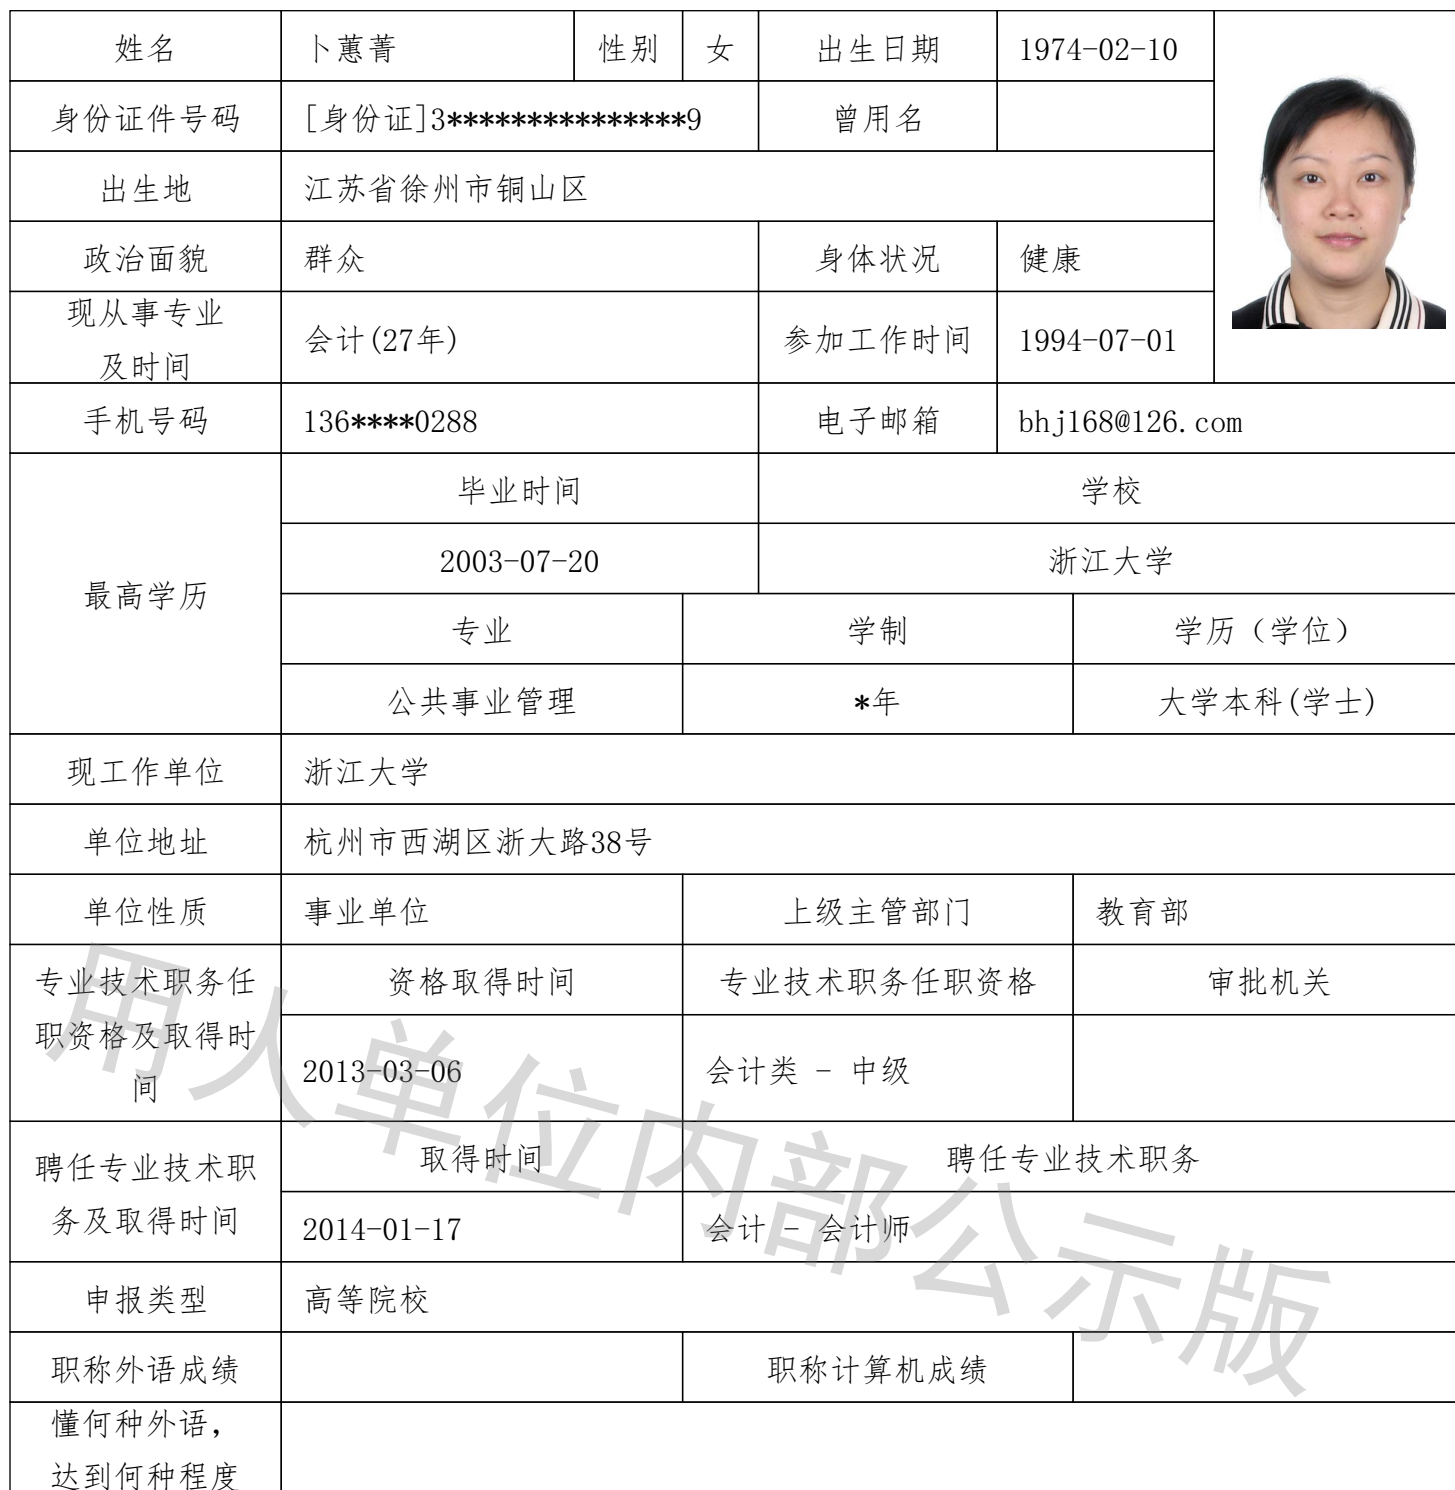 姓名 卜蕙菁 性别 女 出生日期 1974-02-10
身份证件号码 [身份证]3****************9 曾用名
出生地 江苏省徐州市铜山区
政治面貌 群众 身体状况 健康
现从事专业
及时间 会计(27年) 参加工作时间 1994-07-01
手机号码 136****0288 电子邮箱 bhj168@126.com
最高学历
毕业时间 学校
2003-07-20 浙江大学
专业 学制 学历（学位）
公共事业管理 *年 大学本科(学士)
现工作单位 浙江大学
单位地址 杭州市西湖区浙大路38号
单位性质 事业单位 上级主管部门 教育部
专业技术职务任
职资格及取得时
间
资格取得时间 专业技术职务任职资格 审批机关
2013-03-06 会计类 - 中级
聘任专业技术职
务及取得时间
取得时间 聘任专业技术职务
2014-01-17 会计 - 会计师
申报类型 高等院校
职称外语成绩 职称计算机成绩
懂何种外语，
达到何种程度
用人单位内部公示版